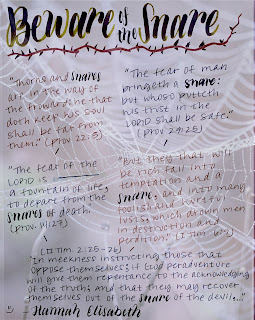 Beware of the Snare
"Thorns and snares
are in the way of
the froward: he that
doth keep his soul
shall be far from
them." (Prov 22:5)
"The fear of man
bringeth a snare:
but whoso putteth
his trust in the
LORD shall be safe."
(Prov 29:25)
"The fear of the
LORD is
a fountain of life,
to depart from the
snares of death."
(Prov. 14:27)
"But they that will
be rich fall into
temptation and a
snare, and into many
foolish and hurtful
lusts, which drown men
in destruction and
perdition." (I Tim 6:9)
(II Tim 2:25-26)
"In meekness instructing those that
oppose themselves; if God peradventure
will give them repentance to the acknowledging
of the truth; and that they may recover
themselves out of the snare of the devil,..."
- Hannah Elisabeth